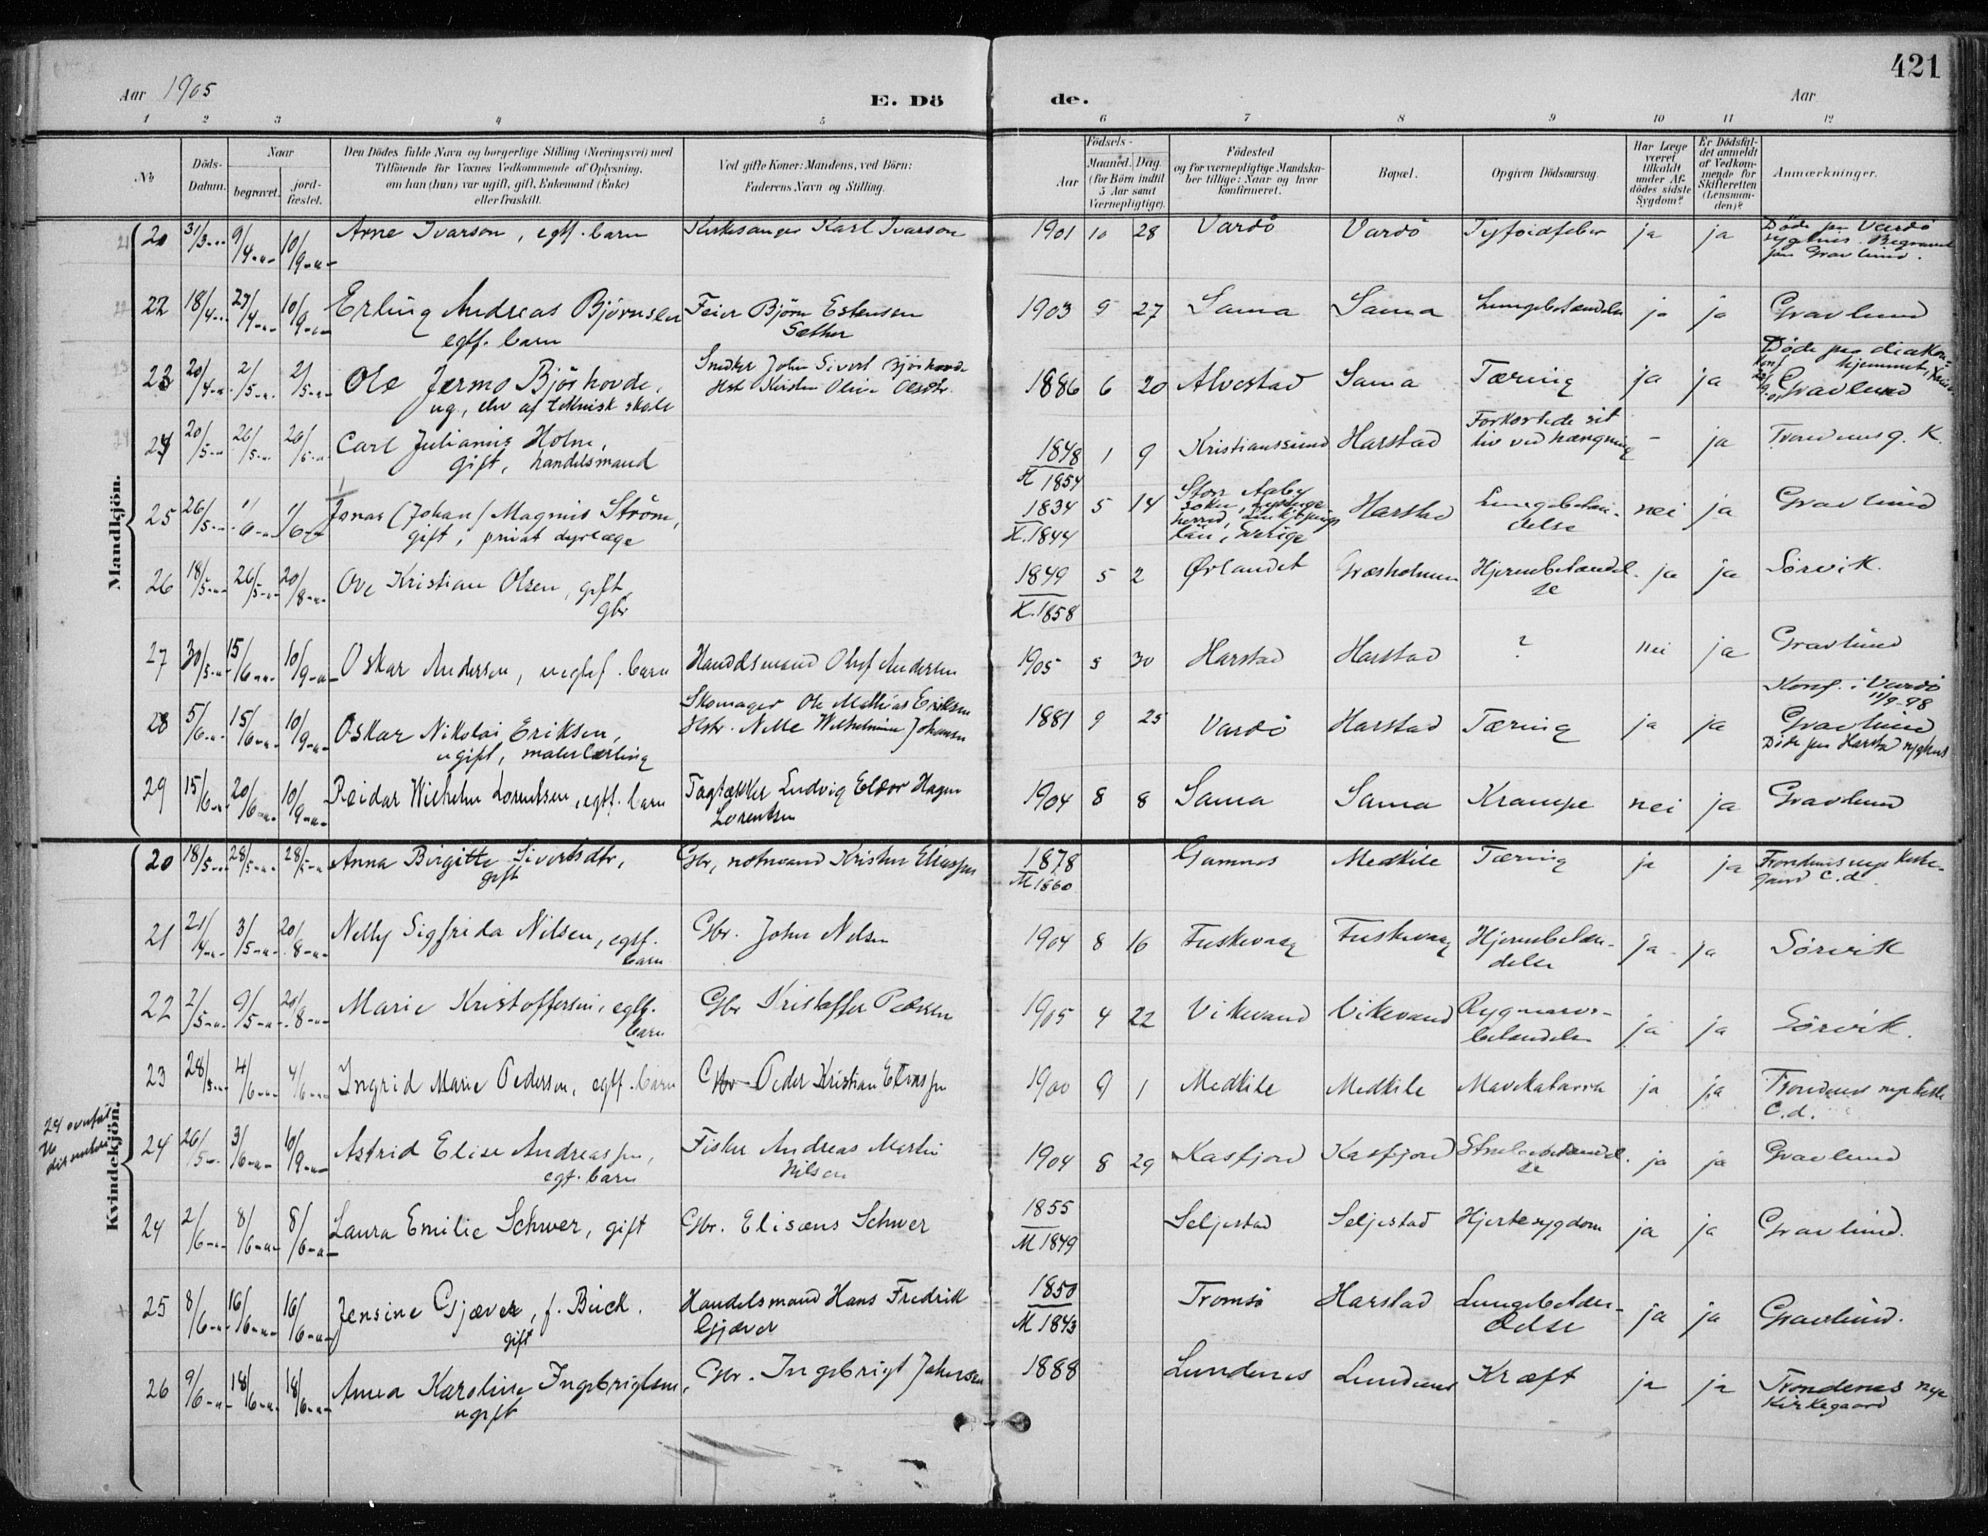 421
Aar 1905
E. Dö de.
Aar
1 2 3 4 5 6 7 8 9 10 11 12
No
Döds-Datum.
Naar
begravet.
jord-fæstet.
Den Dödes fulde Navn og borgerlige Stilling (Næringsvei) med
Tilföiende for Voxnes Vedkommende af Oplysning,
om han (hun) var ugift, gift, Enkemand (Enke)
eller fraskilt.
Ved gifte Koner: Mandens, ved Börn:
Faderens Navn og Stilling.
Födsels-
Aar
Maaned. Dag.
(for Börn indtil
5 Aar samt
Værnepligtige).
Födested
og for værnepligtige Mandska-
ber tillige: Naar og hvor
konfirmeret.
Bopæl.
Opgiven Dödsaarsag.
Har Læge
været
tilkaldt
under Af-
dödes sidste
Sygdom?
Er Dödsfal-
det anmeldt
af Vedkom-
mende for
Skifteretten
(Lensman-
den)?
Anmærkninger.
Mandkjön.
20 31/3 9/4 10/9 Arne Ivarson, egtf. barn Kirkesanger Karl Ivarson 1901 10 28 Vardö Vardö Tyfoidfeber ja ja Döde paa Vardö
sygehus. Begravet
paa Gravlund.
22 18/4 27/4 10/9 Erling Andreas Bjørnsen Feier Bjørn Estensen 1903 9 27 Sama Sama Lungebetændelse ja ja Gravlund
egtf. barn Sæther
23 20/4 2/5 2/5 Ole Jermo Bjørhovde, Snedker John Sivert Bjørhovde 1886 6 20 Alvestad Sama Tæring ja ja Döde paa diakon-
hjemmet,
Gravlund
ug., elev af teknisk skole Hstr Kirsten Oline Olsdtr.
24 20/5 26/5 26/5 Carl Julianus Holm, 1848 1 9 Kristianssund Harstad Forkortede sit
liv ved hængning - ja Trondenes g. K.
gift, handelsmand K 1854
25 26/5 1/6 1/6 Jonas (Johan) Magnus Ström, 1834 5 14 Harstad Lungebetæn-
delse nei ja Gravlund
gift, privat dyrlæge K. 1844
län, Sverige
26 18/5 26/5 20/8 Ove Kristian Olsen, gift, 1849 5 2 Ørlandet Græsholmen Hjernebetændel-
se ja ja Sörvik.
gbr K. 1858
27 30/5 15/6 10/9 Oskar Andersen, uegtef. barn Handelsmand Oluf Andersen 1905 5 30 Harstad Harstad ? nei ja Gravlund
28 5/6 15/6 10/9 Oskar Nikolai Eriksen, Skomager Ole Mathias Eriksen 1881 9 25 Vardö Harstad Tæring ja ja Konf. i Vardö
11/9-98
Gravlund
Döde paa Harstad sygehus
ugift, malerlærling Hstr. Nelle Wilhelmine Johansen
29 15/6 20/6 10/9 Reidar Wilhelm Lorentsen, egtf. barn Tagtækker Ludvig Eldor Hagen 1904 8 8 Sama Sama Krampe nei ja Gravlund
Lorentsen
Kvindekjön.
20 18/5 28/5 28/5 Anna Birgitte Sivertsdtr, Gbr, notmand Kristen Eliassen 1878 Gamnes Medkile Tæring ja ja Trondenes nye Kirke-
gaard C.d.
gift M 1860
21 21/4 3/5 20/8 Nelly Sigfrida Nilsen, egtf. Gbr. John Nilsen 1904 8 16 Fuskevaag Fuskevaag Hjernebetæn-
delse ja ja Sörvik
barn
22 2/5 9/5 20/8 Marie Kristoffersen, egtf. Gbr Kristoffer Pedersen 1905 4 22 Vikevand Vikevand Rygmarvs-
betændelse ja ja Sörvik.
barn
23 28/5 4/6 4/6 Ingrid Marie Pedersen, egtf. barn Gbr Peder Kristian Eliassen 1900 9 1 Medkile Medkile Mavekatarrh ja ja Trondenes nye kirke
C.d.
24 26/5 3/6 10/9 Astrid Elise Andreassen, Fisker Andreas Martin 1904 8 29 Kasfjord Kasfjord Strubebetændel-
se ja ja Gravlund
egt. barn Nilsen
24 2/6 8/6 8/6 Laura Emilie Schwer, gift Gbr. Elisæus Schwer 1855 Seljestad Seljestad Hjertesygdom ja ja Gravlund.
M 1849
25 8/6 16/6 16/6 Jensine Gjæver, f. Buck. Handelsmand Hans Fredrik 1850 Tromsö Harstad Lungebetæn-
delse ja ja Gravlund.
gift Gjæver M 1843
26 9/6 18/6 18/6 Anna Karoline Ingebrigtsen, Gbr. Ingebrigt Johansen 1888 Lundenes Lundenes Kræft ja ja Trondenes nye
Kirkegaard
ugift